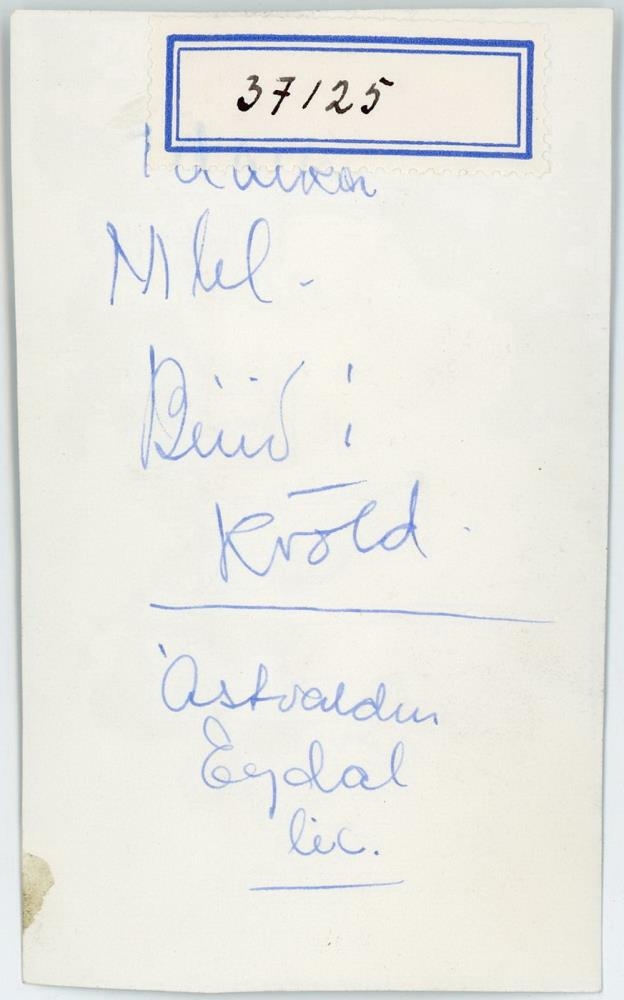 37/25
N1 kl.
Búið í
kvöld.
Ástvaldur
Eydal
lic.